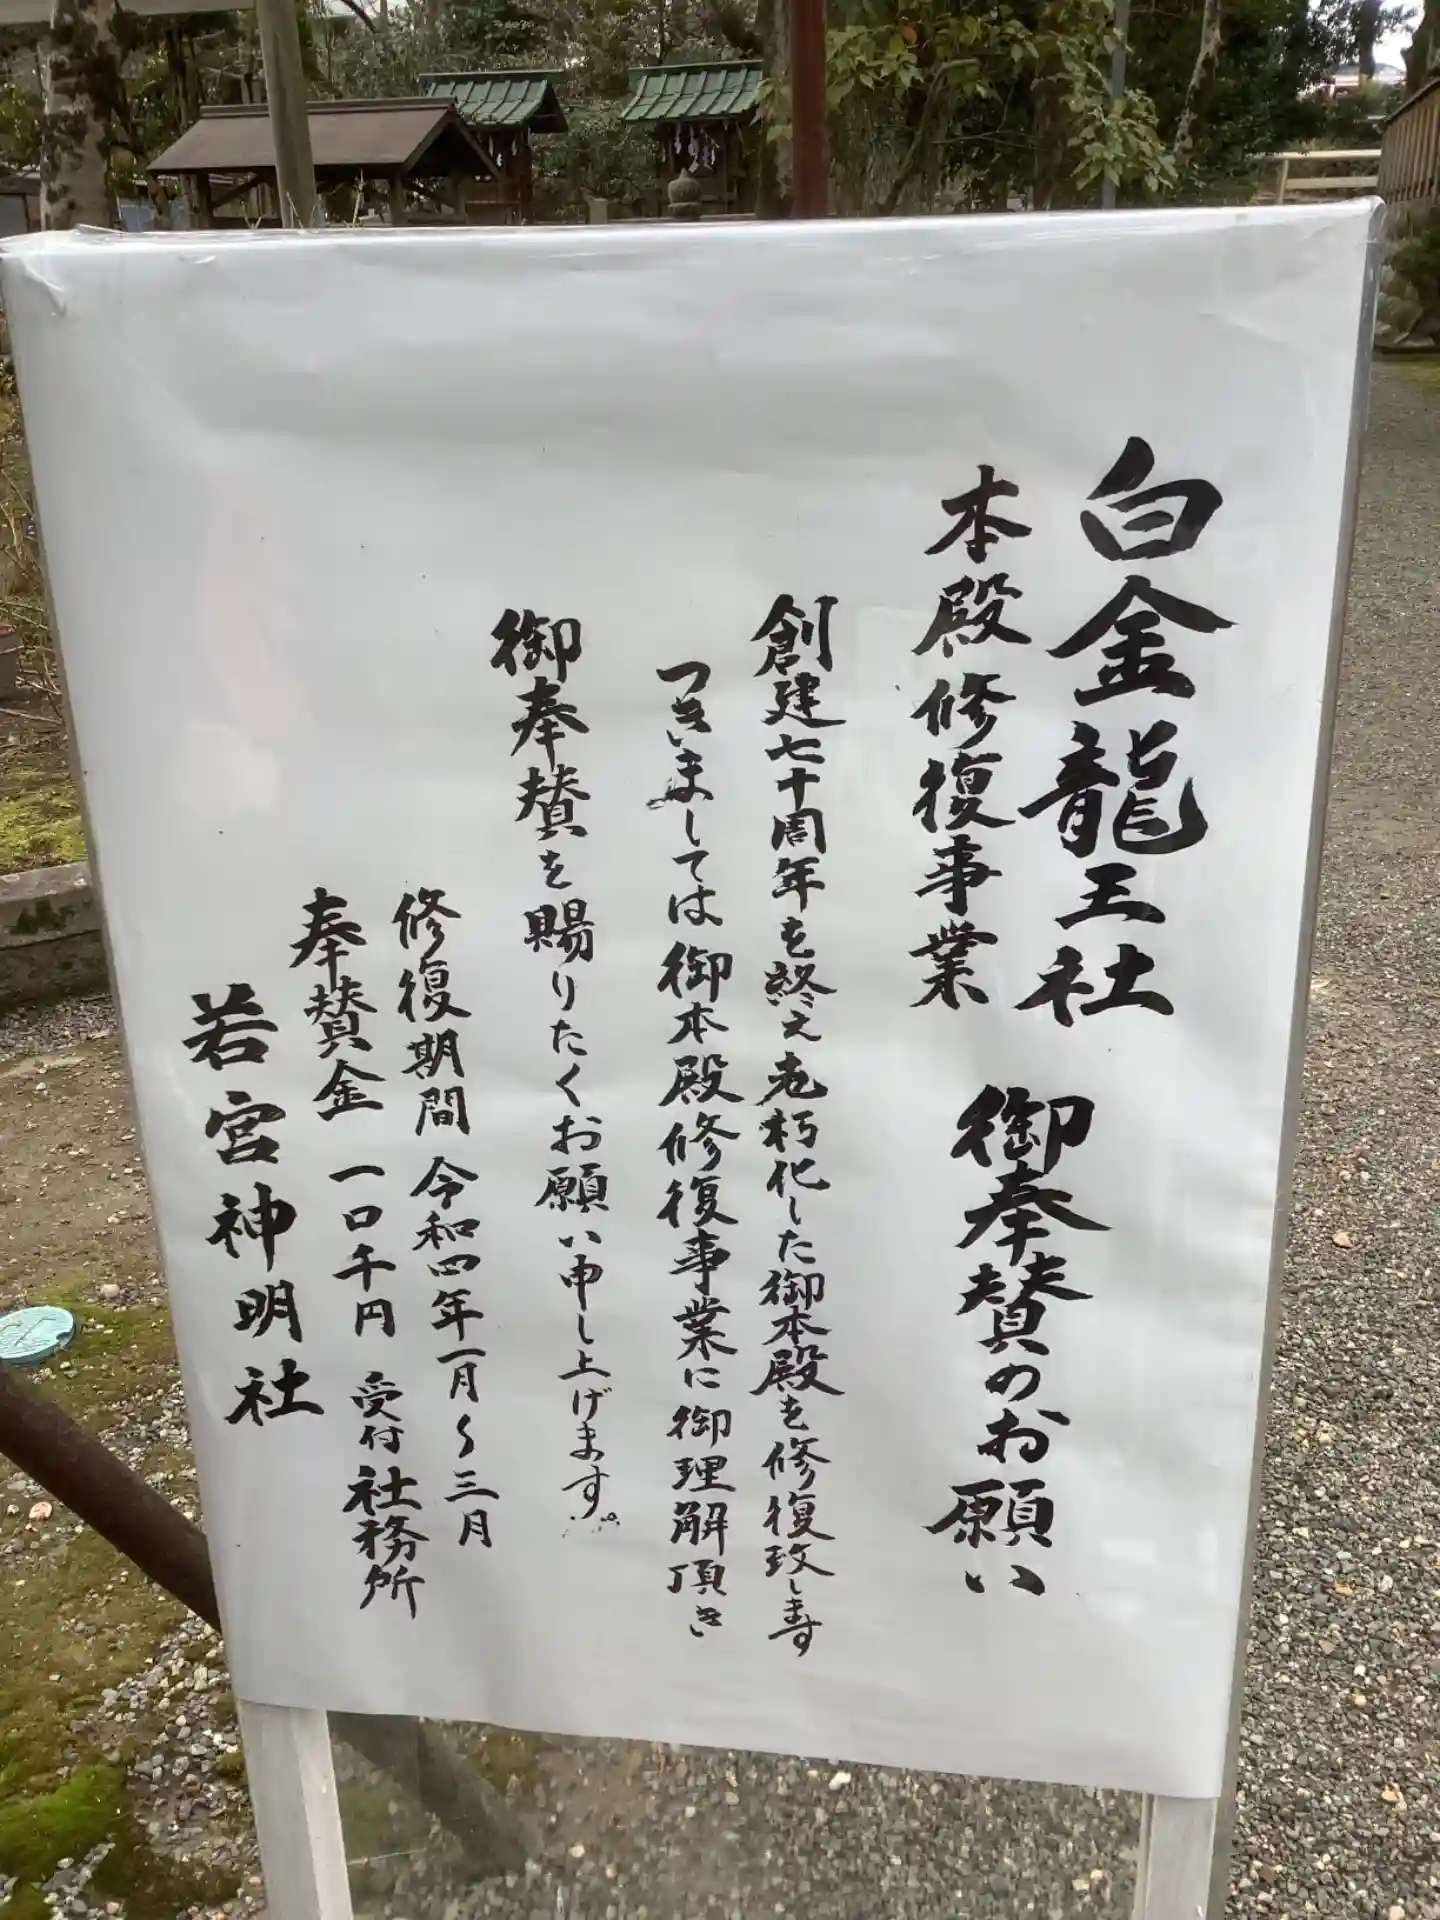 白金龍王社
本殿修復事業
御奉賛のお願い
創建七十周年を終え老朽化した御本殿を修復致します
つきいましては御本殿修復事業に御理解頂き
御奉賛を賜りたくお願い申し上げます。
修復期間 令和四年一月〜三月
奉賛金 一口千円 受付 社務所
若宮神明社